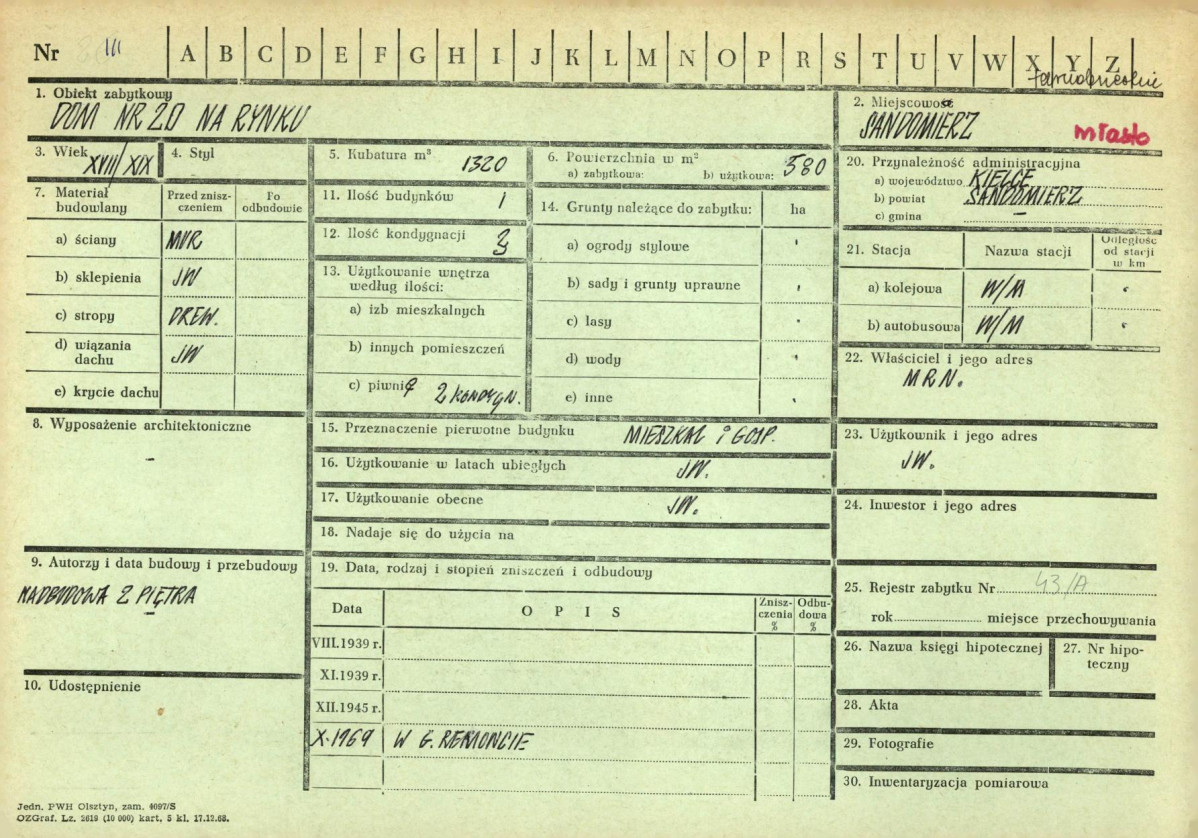 Nr III A B C D E F G H I J K L M N O P R S T U V W X Y Z
tarnobrzeskie
1. Obiekt zabytkowy
DOM NR 20 NA RYNKU
2. Miejscowość
SANDOMIERZ miasto
3. Wiek XVII/XIX
4. Styl
5. Kubatura m³ 1320
6. Powierzchnia w m²
a) zabytkowa: b) użytkowa: 580
7. Materiał budowlany
Przed znisz-
czeniem
Po
odbudowie
a) ściany MUR
b) sklepienia JW
c) stropy DREW.
d) wiązania
dachu JW
e) krycie dachu
8. Wyposażenie architektoniczne
-
9. Autorzy i data budowy i przebudowy
NADBUDOWA 2 PIĘTRA
-
10. Udostępnienie
11. Ilość budynków 1
12. Ilość kondygnacji 3
13. Użytkowanie wnętrza
według ilości:
a) izb mieszkalnych
b) innych pomieszczeń
c) piwnic 2 KONDYGN.
14. Grunty należące do zabytku: ha
a) ogrody stylowe
b) sady i grunty uprawne
c) lasy
d) wody
e) inne
15. Przeznaczenie pierwotne budynku MIESZKAL I GOSP.
16. Użytkowanie w latach ubiegłych JW.
17. Użytkowanie obecne JW.
18. Nadaje się do użycia na
19. Data, rodzaj i stopień zniszczeń i odbudowy
Data OPIS
Znisz-
czenia
%
Odbu-
dowa
%
VIII.1939 r.
XI.1939 r.
XII.1945 r.
X.1969 W G. REMONCIE
20. Przynależność administracyjna
a) województwo KIELCE
b) powiat SANDOMIERZ
c) gmina -
21. Stacja Nazwa stacji
Odległość
od stacji
w km
a) kolejowa W/M
b) autobusowa W/M
22. Właściciel i jego adres
MRN.
23. Użytkownik i jego adres
JW.
24. Inwestor i jego adres
25. Rejestr zabytku Nr 43/A
rok miejsce przechowywania
26. Nazwa księgi hipotecznej
27. Nr hipo-
teczny
28. Akta
29. Fotografie
30. Inwentaryzacja pomiarowa
Jedn. PWH Olsztyn, zam. 4097/S
OZGraf. Lz. 2619 (10 000) kart. 5 kl. 17.12.68.